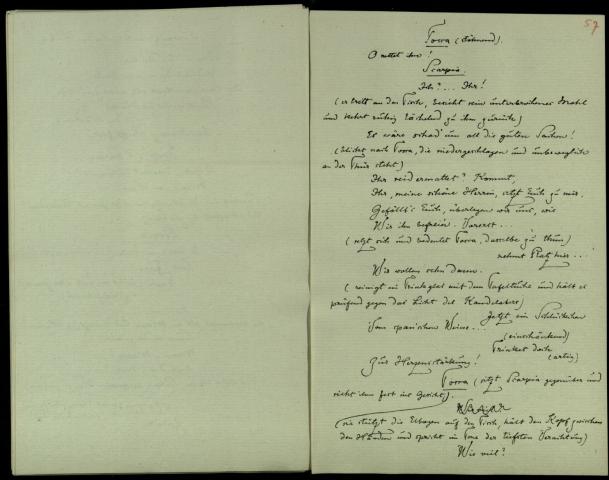 57
Tosca (stöhnend).
O rettet ihn!
Scarpia.
Ich?... Ihr!
(er tritt an den Tisch, besieht sein unterbrochenes Mahl
und kehrt ruhig lächelnd zu ihm zurück)
Es wäre schad' um all die guten Sachen!
(blickt nach Tosca, die niedergeschlagen und unbeweglich
an der Thür steht)
Ihr seid ermattet? Kommt,
Ihr, meine schöne Herrin, setzt Euch zu mir.
Gefällt's Euch, überlegen wir uns, wie
Wir ihn befreien. Vorerst...
(setzt sich und bedeutet Tosca, dasselbe zu thun)
nehmt Platz hier...
Wir wollen sehn darum.
(reinigt ein Trinkglas mit dem Tafeltuche und hält es
prüfend gegen das Licht des Kandelabers)
Jetzt ein Schlückchen
Vom spanischen Weine...
(einschänkend)
Trinket doch
(artig)
Zur Herzensstärkung!
Tosca (sitzt Scarpia gegenüber und
sieht ihm fest ins Gesicht).
(sie stützt die Elbogen auf den Tisch, hält den Kopf zwischen
den Händen und spricht im Tone der tiefsten Verachtung)
Wie viel?